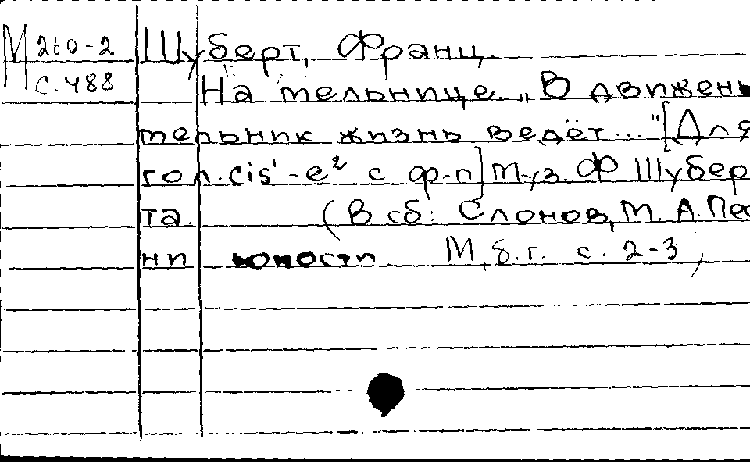 М 260-2
с. 488
Шуберт, Франц.
На мельнице. „В движень
мельник жизнь ведёт..." [Для
гол. cis¹-e² с ф-п] Муз. Ф Шубер
та. (В сб: Слонов, М. А. Пес
ни юности. М, б. г. с. 2-3)